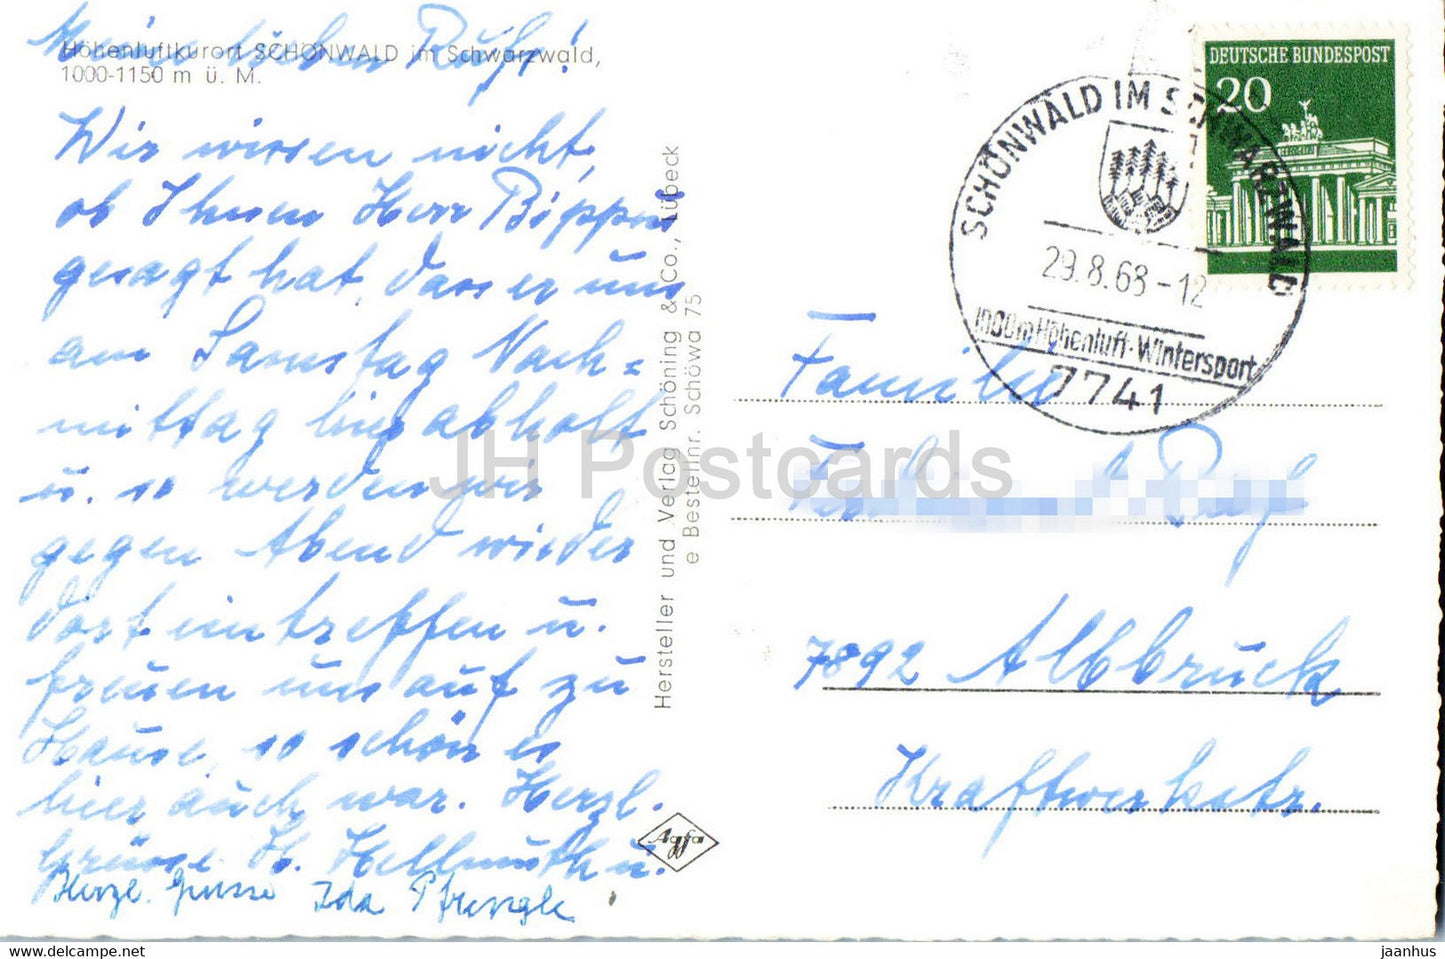 Meine lieben Ruf's!
Höhenluftkurort SCHÖNWALD im Schwarzwald,
1000-1150 m ü. M.
Wir wissen nicht,
ob Ihnen Herr
gesagt hat, dass er uns
am Samstag Nach=
mittag hier abholt
u. so werden wir
gegen Abend wieder
dort eintreffen u.
freuen uns auf zu
Hause, so schön es
hier auch war. Herzl.
Grüsse H. Hellmuth u.
Herzl. Grüsse Ida
Hersteller und Verlag Schöning & Co., Lübeck
e Bestellnr. Schöwa 75
Agfa
DEUTSCHE BUNDESPOST
20
SCHÖNWALD IM SCHWARZWALD
29.8.68-12
1000m Höhenluft-Wintersport
7741
Familie
Ruf
7892 Albbruck
Kraftwerkstr.
JH Postcards
hipstamp.com
jaanhus